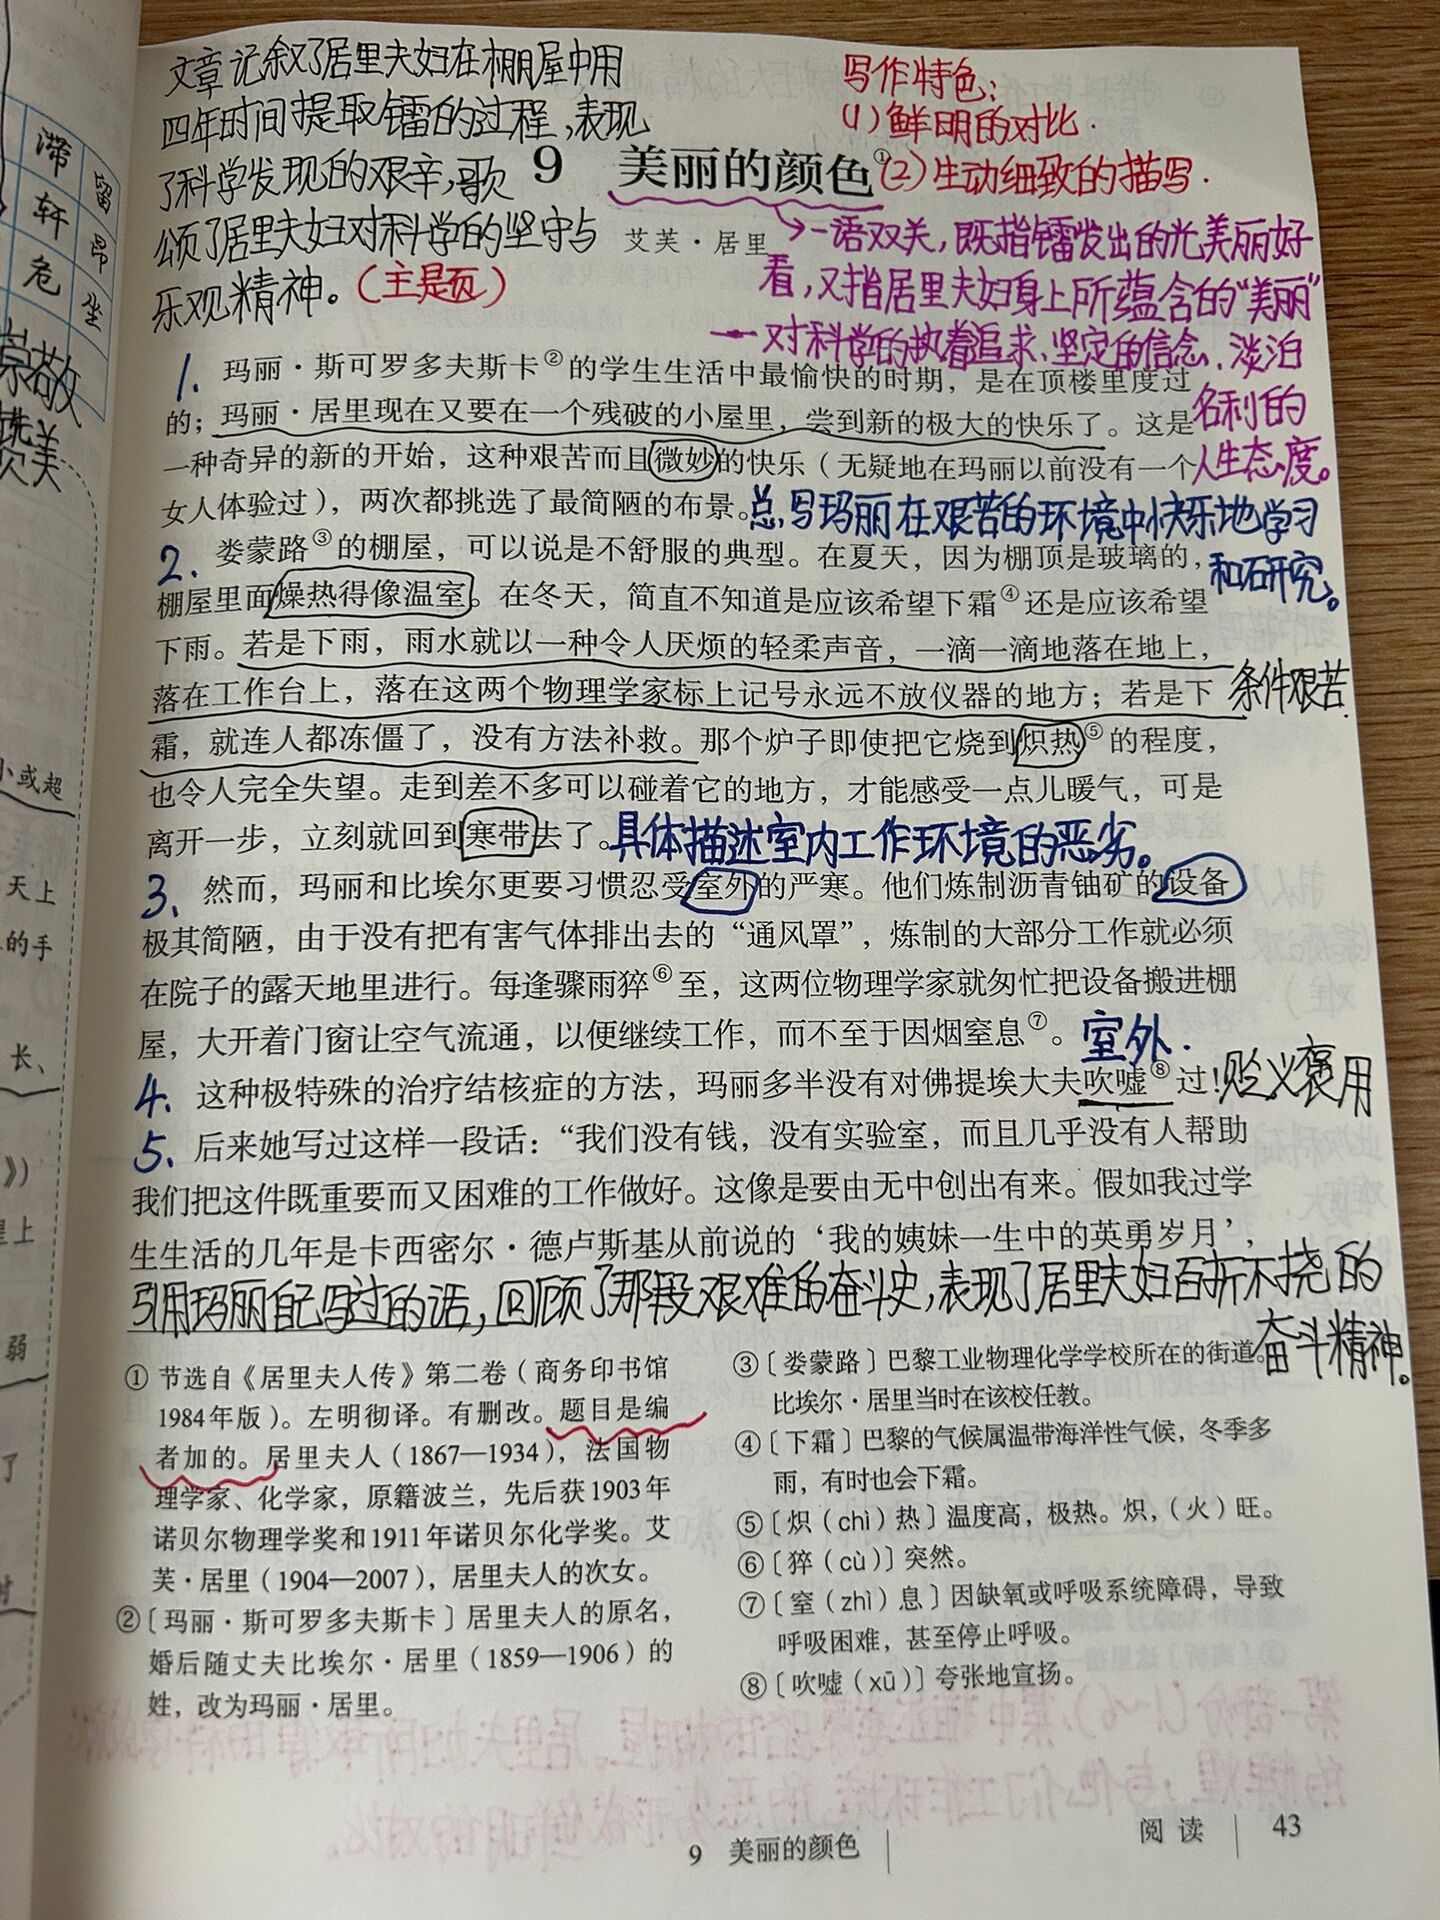 滞
留
轩
昂
危
坐
崇敬
赞美
小或超
天上
的手
长、
》)
弱
了
文章记叙了居里夫妇在棚屋中用
四年时间提取镭的过程,表现
了科学发现的艰辛,歌
颂了居里夫妇对科学的坚守与
乐观精神。(主旨页)
写作特色:
(1)鲜明的对比.
(2)生动细致的描写.
9 美丽的颜色①
艾芙·居里
一语双关,既指镭发出的光美丽好
看,又指居里夫妇身上所蕴含的“美丽”
一对科学的执着追求、坚定的信念、淡泊
名利的
人生态度。
1. 玛丽·斯可罗多夫斯卡②的学生生活中最愉快的时期,是在顶楼里度过
的;玛丽·居里现在又要在一个残破的小屋里,尝到新的极大的快乐了。这是
一种奇异的新的开始,这种艰苦而且微妙的快乐(无疑地在玛丽以前没有一个
女人体验过),两次都挑选了最简陋的布景。
总,写玛丽在艰苦的环境中快乐地学习
和研究。
2. 娄蒙路③的棚屋,可以说是不舒服的典型。在夏天,因为棚顶是玻璃的,
棚屋里面燥热得像温室。在冬天,简直不知道是应该希望下霜④还是应该希望
下雨。若是下雨,雨水就以一种令人厌烦的轻柔声音,一滴一滴地落在地上,
落在工作台上,落在这两个物理学家标上记号永远不放仪器的地方;若是下
条件艰苦.
霜,就连人都冻僵了,没有方法补救。那个炉子即使把它烧到炽热⑤的程度,
也令人完全失望。走到差不多可以碰着它的地方,才能感受一点儿暖气,可是
离开一步,立刻就回到寒带去了。
具体描述室内工作环境的恶劣。
3、然而,玛丽和比埃尔更要习惯忍受室外的严寒。他们炼制沥青铀矿的设备
极其简陋,由于没有把有害气体排出去的“通风罩”,炼制的大部分工作就必须
在院子的露天地里进行。每逢骤雨猝⑥至,这两位物理学家就匆忙把设备搬进棚
屋,大开着门窗让空气流通,以便继续工作,而不至于因烟窒息⑦。
室外.
4. 这种极特殊的治疗结核症的方法,玛丽多半没有对佛提埃大夫吹嘘⑧过!
贬义褒用
5、后来她写过这样一段话:“我们没有钱,没有实验室,而且几乎没有人帮助
我们把这件既重要而又困难的工作做好。这像是要由无中创出有来。假如我过学
生生活的几年是卡西密尔·德卢斯基从前说的‘我的姨妹一生中的英勇岁月’,
引用玛丽自己写过的话,回顾了那段艰难的奋斗史,表现了居里夫妇百折不挠的
奋斗精神。
① 节选自《居里夫人传》第二卷(商务印书馆
1984年版)。左明彻译。有删改。题目是编
者加的。居里夫人(1867—1934),法国物
理学家、化学家,原籍波兰,先后获1903年
诺贝尔物理学奖和1911年诺贝尔化学奖。艾
芙·居里(1904—2007),居里夫人的次女。
②〔玛丽·斯可罗多夫斯卡〕居里夫人的原名,
婚后随丈夫比埃尔·居里(1859—1906)的
姓,改为玛丽·居里。
③〔娄蒙路〕巴黎工业物理化学学校所在的街道。
比埃尔·居里当时在该校任教。
④〔下霜〕巴黎的气候属温带海洋性气候,冬季多
雨,有时也会下霜。
⑤〔炽(chì)热〕温度高,极热。炽,(火)旺。
⑥〔猝(cù)〕突然。
⑦〔窒(zhì)息〕因缺氧或呼吸系统障碍,导致
呼吸困难,甚至停止呼吸。
⑧〔吹嘘(xū)〕夸张地宣扬。
9 美丽的颜色
阅读 43